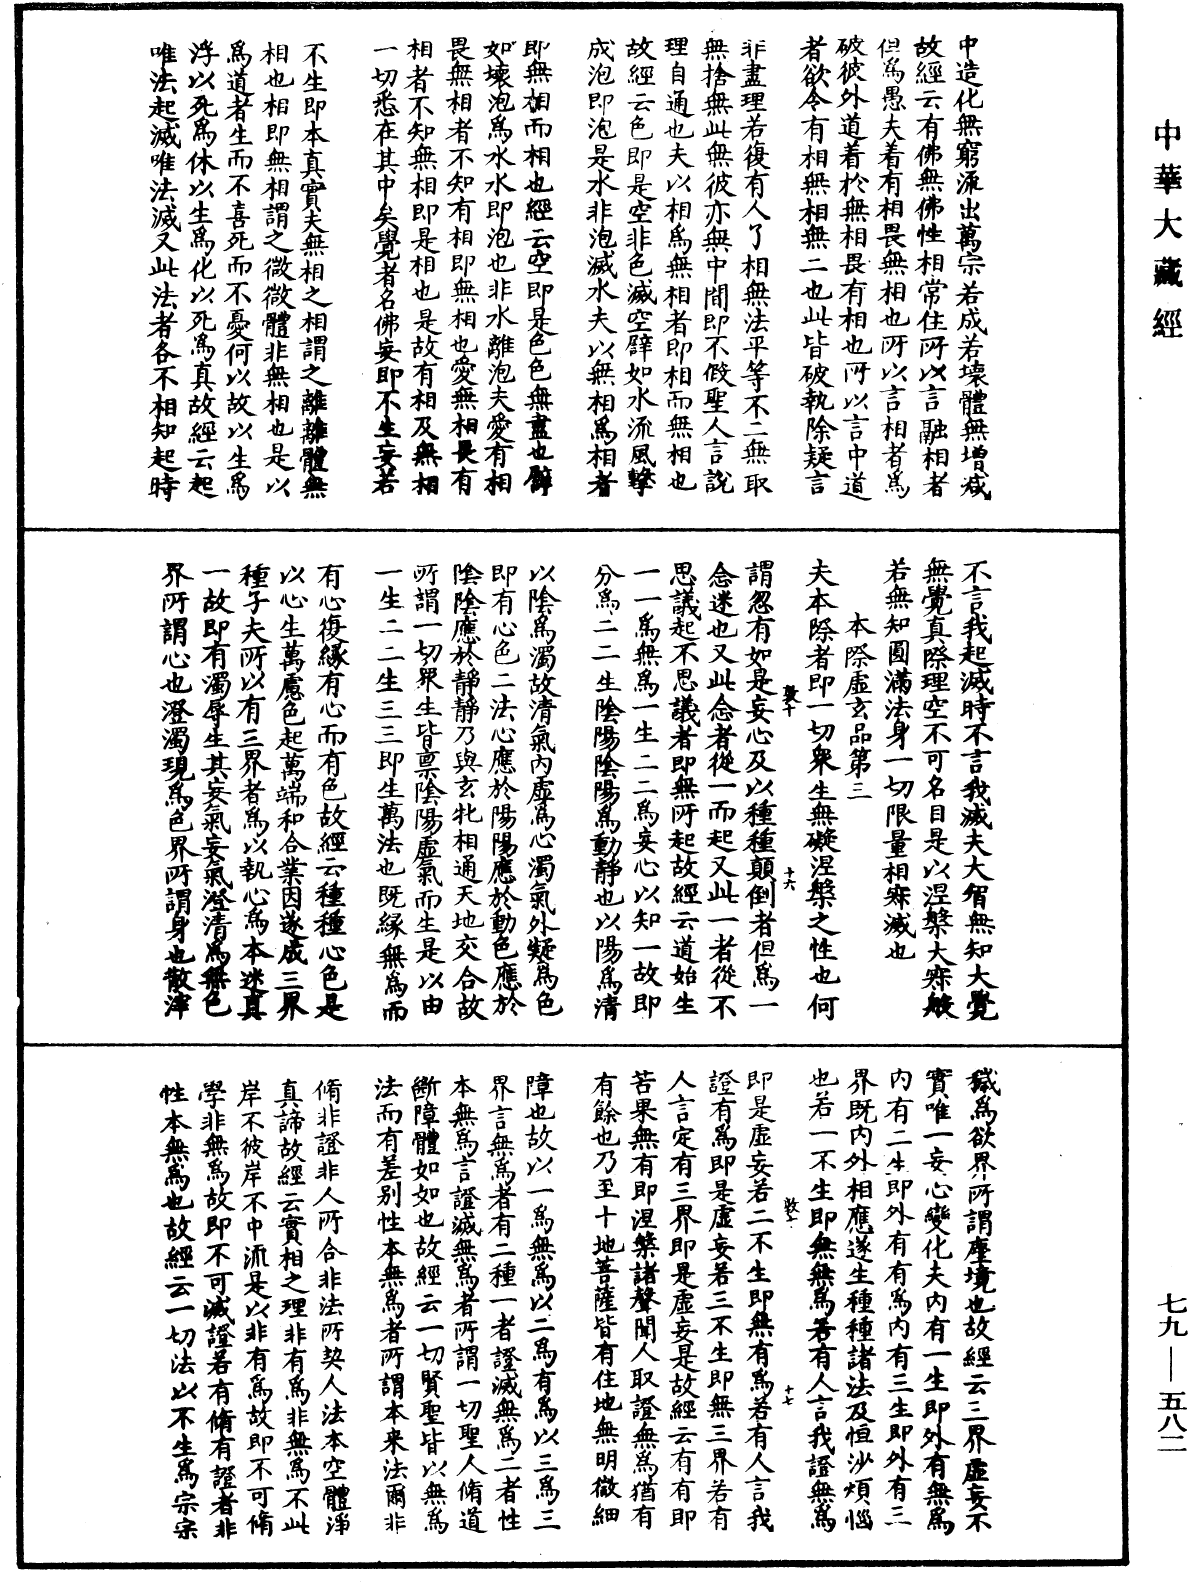 中華大藏經
七九—五八二
中造化無窮流出萬宗若成若壞體無增减
故經云有佛無佛性相常住所以言融相者
但為愚夫着有相畏無相也所以言相者為
破彼外道着於無相畏有相也所以言中道
者欲令有相無相無二也此皆破執除疑言
非盡理若復有人了相無法平等不二無取
無捨無此無彼亦無中間即不假聖人言說
理自通也夫以相為無相者即相而無相也
故經云色即是空非色滅空譬如水流風擊
成泡即泡是水非泡滅水夫以無相為相者
即無相而相也經云空即是色色無盡也譬
如壞泡為水水即泡也非水離泡夫愛有相
畏無相者不知有相即無相也愛無相畏有
相者不知無相即是相也是故有相及無相
一切悉在其中矣覺者名佛妄即不生妄若
不生即本真實夫無相之相謂之離離體無
相也相即無相謂之微微體非無相也是以
為道者生而不喜死而不憂何以故以生為
浮以死為休以生為化以死為真故經云起
唯法起滅唯法滅又此法者各不相知起時
不言我起滅時不言我滅夫大智無知大覺
無覺真際理空不可名目是以涅槃大寂般
若無知圓滿法身一切限量相寂滅也
本際虛玄品第三
夫本際者即一切衆生無礙涅槃之性也何
謂忽有如是妄心及以種種顛倒者但為一
念迷也又此念者從一而起又此一者從不
思議起不思議者即無所起故經云道始生
一一為無為一生二二為妄心以知一故即
分為二二生陰陽陰陽為動靜也以陽為清
以陰為濁故清氣內虛為心濁氣外凝為色
即有心色二法心應於陽陽應於動色應於
陰陰應於靜靜乃與玄牝相通天地交合故
所謂一切衆生皆禀陰陽虛氣而生是以由
一生二二生三三即生萬法也既緣無為而
有心復緣有心而有色故經云種種心色是
以心生萬慮色起萬端和合業因遂成三界
種子夫所以有三界者為以執心為本迷真
一故即有濁辱生其妄氣妄氣澄清為無色
界所謂心也澄濁現為色界所謂身也散滓
穢為欲界所謂塵境也故經云三界虛妄不
實唯一妄心變化夫內有一生即外有無為
內有二生即外有有為內有三生即外有三
界既內外相應遂生種種諸法及恒沙煩惱
也若一不生即無無為若有人言我證無為
即是虛妄若二不生即無有為若有人言我
證有為即是虛妄若三不生即無三界若有
人言定有三界即是虛妄是故經云有有即
苦果無有即涅槃諸聲聞人取證無為猶有
有餘也乃至十地菩薩皆有住地無明微細
障也故以一為無為以二為有為以三為三
界言無為者有二種一者證滅無為二者性
本無為言證滅無為者所謂一切聖人脩道
斷障體如如也故經云一切賢聖皆以無為
法而有差別性本無為者所謂本来法爾非
脩非證非人所合非法所契人法本空體淨
真諦故經云實相之理非有為非無為不此
岸不彼岸不中流是以非有為故即不可脩
學非無為故即不可滅證若有脩有證者非
性本無為也故經云一切法以不生為宗宗
十六
十七